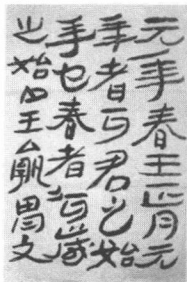 元年春王正月元
年者何君之始
年也春者何歲
之始也王孰胃文